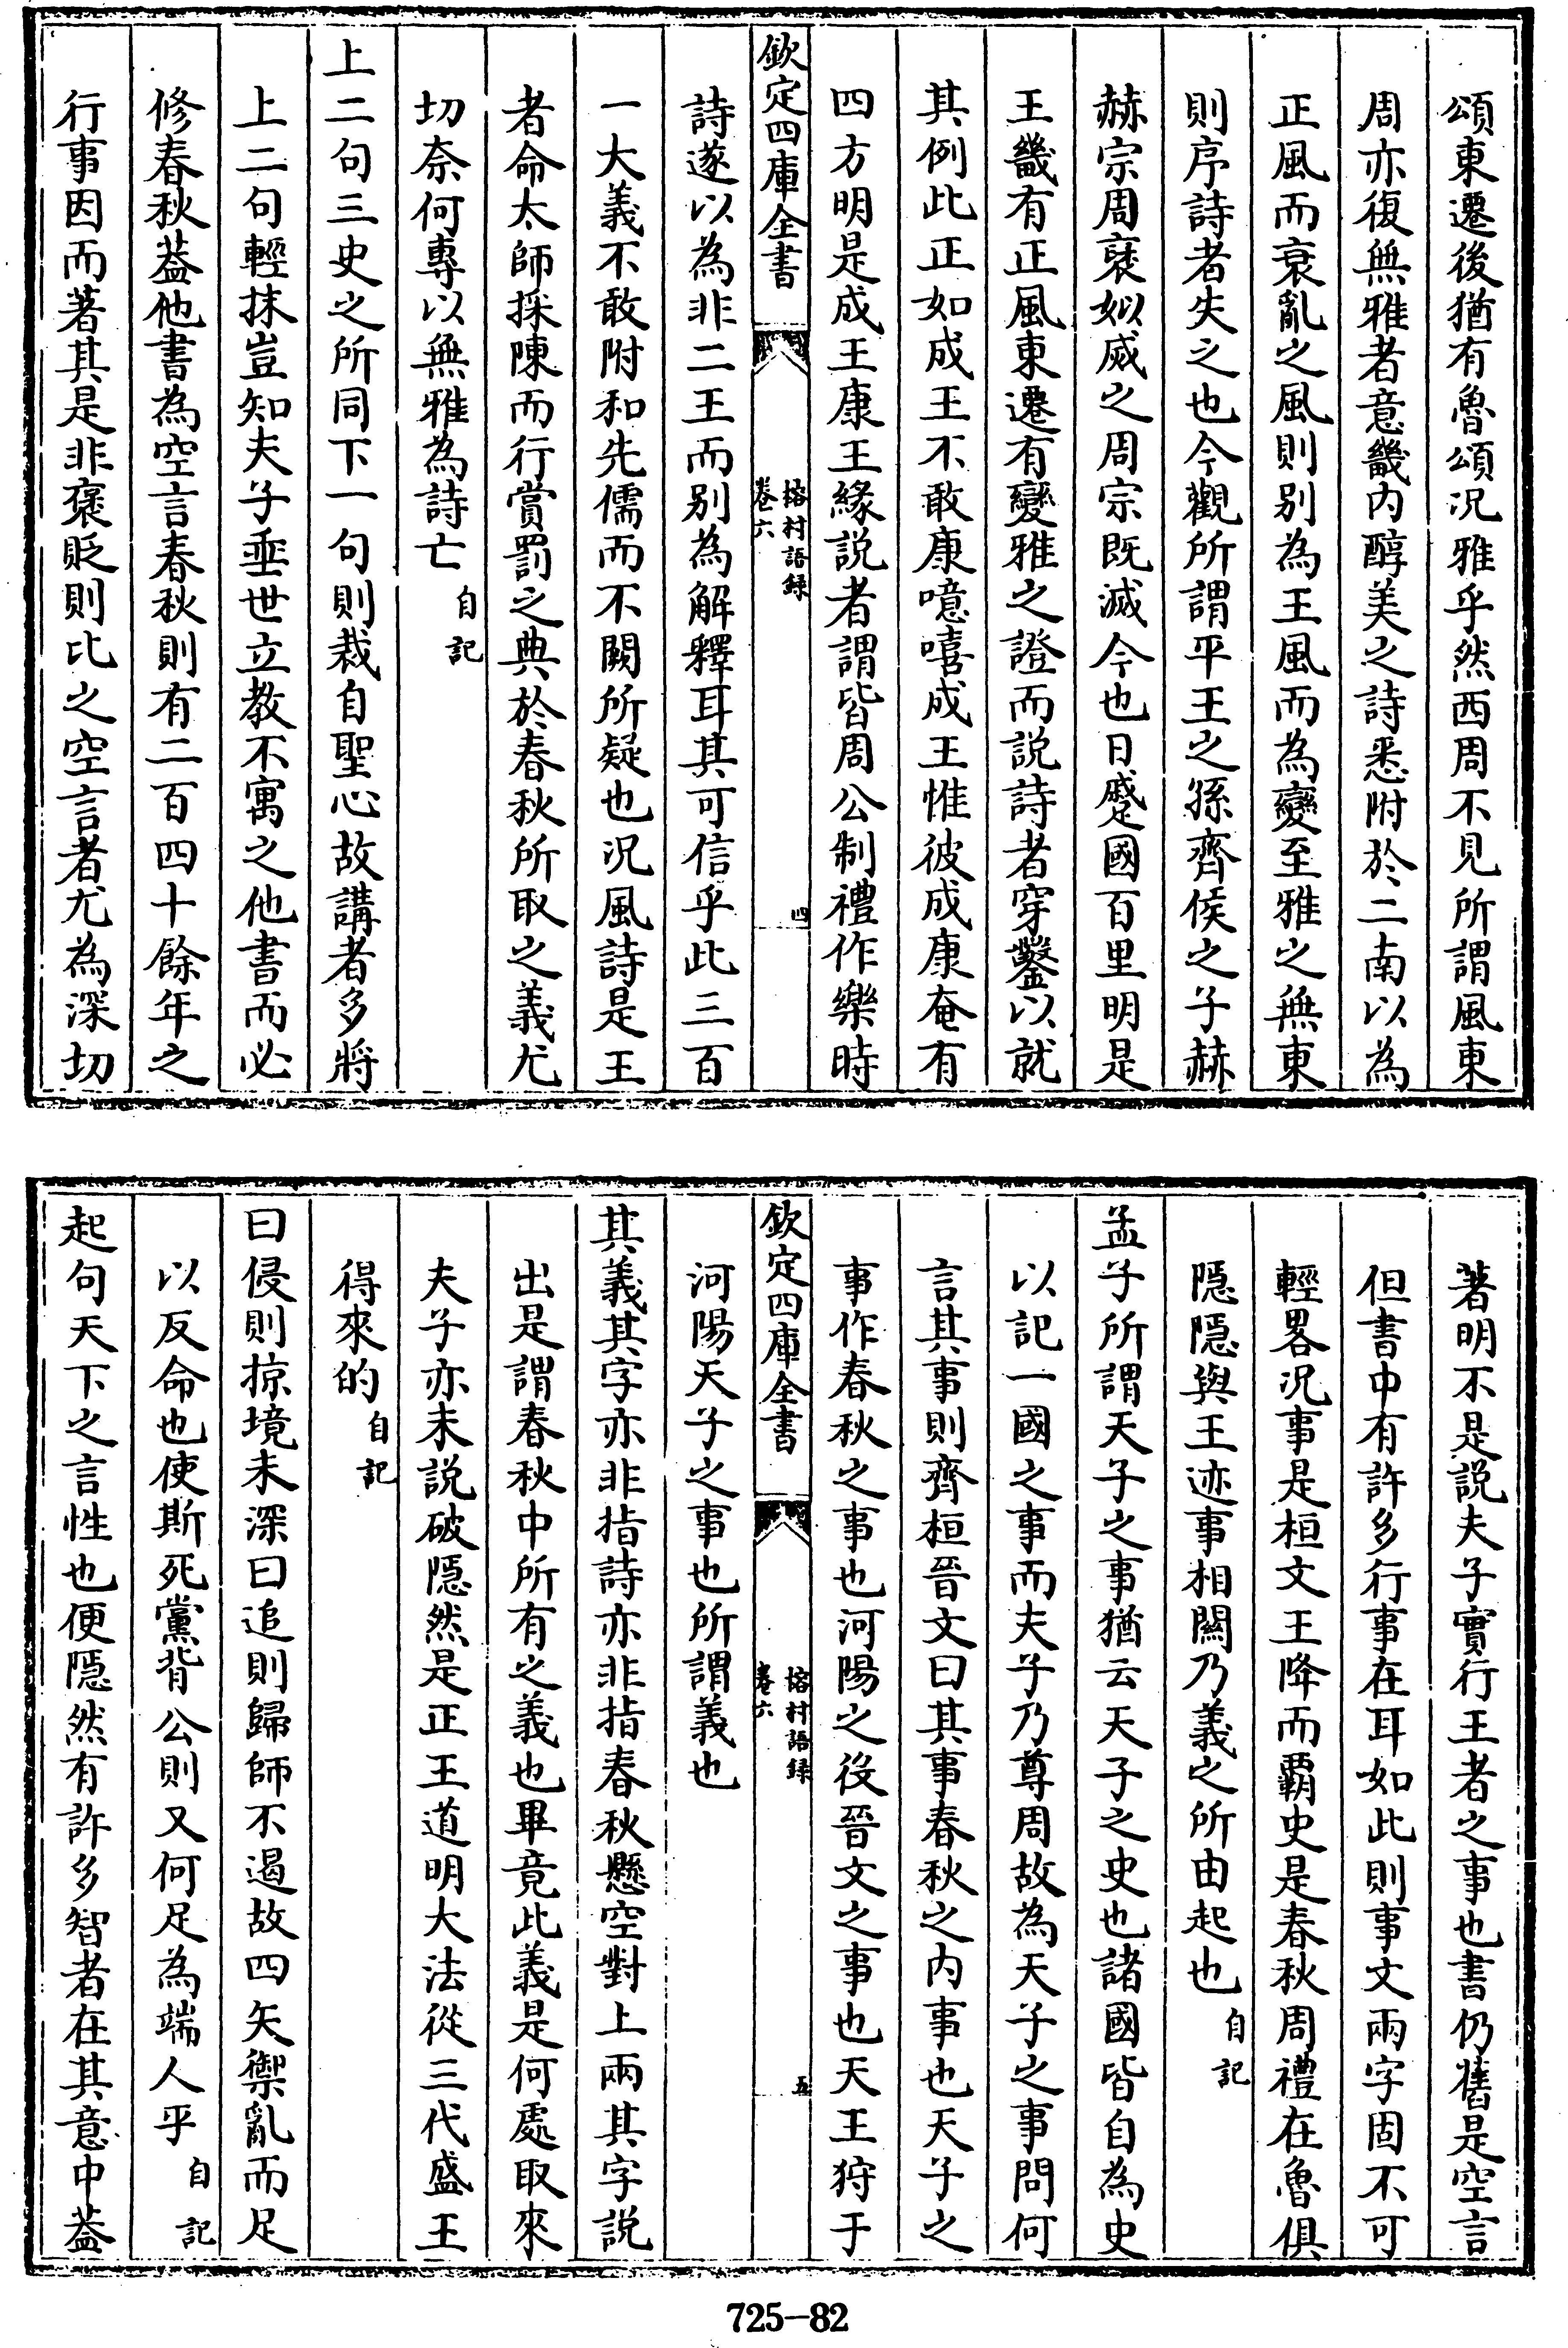 頌東遷後猶有魯頌况雅乎然西周不見所謂風東
周亦復無雅者意畿内醇美之詩悉附於二南以為
正風而衰亂之風則别為王風而為變至雅之無東
則序詩者失之也今觀所謂平王之孫齊侯之子赫
赫宗周褒姒烕之周宗既滅今也日蹙國百里明是
王畿有正風東遷有變雅之證而説詩者穿鑿以就
其例此正如成王不敢康噫嘻成王惟彼成康奄有
四方明是成王康王緣説者謂皆周公制禮作樂時
欽定四庫全書
榕村語録
卷六
四
詩遂以為非二王而别為解釋耳其可信乎此三百
一大義不敢附和先儒而不闕所疑也况風詩是王
者命太師採陳而行賞罰之典於春秋所取之義尤
切奈何專以無雅為詩亡自記
上二句三史之所同下一句則裁自聖心故講者多將
上二句輕抹豈知夫子垂世立教不寓之他書而必
修春秋葢他書為空言春秋則有二百四十餘年之
行事因而著其是非褒貶則比之空言者尤為深切
著明不是説夫子實行王者之事也書仍舊是空言
但書中有許多行事在耳如此則事文兩字固不可
輕畧况事是桓文王降而覇史是春秋周禮在魯俱
隱隱與王迹事相關乃義之所由起也自記
孟子所謂天子之事猶云天子之史也諸國皆自為史
以記一國之事而夫子乃尊周故為天子之事問何
言其事則齊桓晉文曰其事春秋之内事也天子之
事作春秋之事也河陽之役晉文之事也天王狩于
欽定四庫全書
榕村語録
卷六
五
河陽天子之事也所謂義也
其義其字亦非指詩亦非指春秋懸空對上兩其字説
出是謂春秋中所有之義也畢竟此義是何處取來
夫子亦未説破隱然是正王道明大法從三代盛王
得來的自記
曰侵則掠境未深曰追則歸師不遏故四矢禦亂而足
以反命也使斯死黨背公則又何足為端人乎自記
起句天下之言性也便隱然有許多智者在其意中葢
725-82